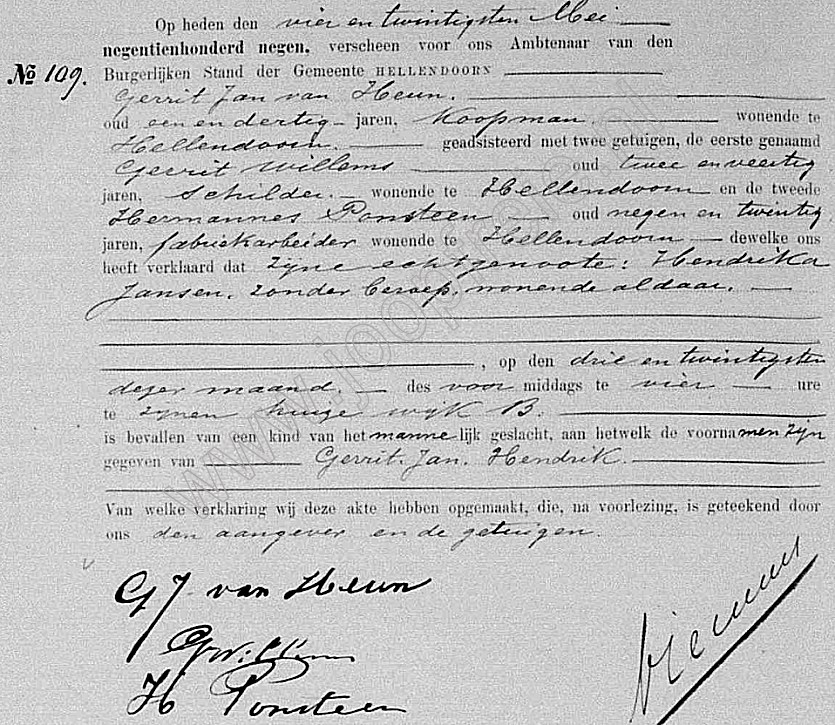 Op heden den vier en twintigsten Mei
negentienhonderd negen, verscheen voor ons Ambtenaar van den
№ 109. Burgerlijken Stand der Gemeente HELLENDOORN
Gerrit Jan van Heun.
oud een en dertig jaren, Koopman. wonende te
Hellendoorn. geadsisteerd met twee getuigen, de eerste genaamd
Gerrit Willems oud twee en veertig
jaren, Schilder. wonende te Hellendoorn en de tweede
Hermannes Ponsteen oud negen en twintig
jaren, fabriekarbeider wonende te Hellendoorn dewelke ons
heeft verklaard dat zijne echtgenoote: Hendrika
Jansen, zonder beroep, wonende aldaar.
, op den drie en twintigsten
dezer maand des voor middags te vier ure
te zijnen huize wijk B.
is bevallen van een kind van het mannelijk geslacht, aan hetwelk de voornamen zijn
gegeven van Gerrit Jan. Hendrik.
Van welke verklaring wij deze akte hebben opgemaakt, die, na voorlezing, is geteekend door
ons den aangever en de getuigen.
GJ van Heun
H Ponsteen